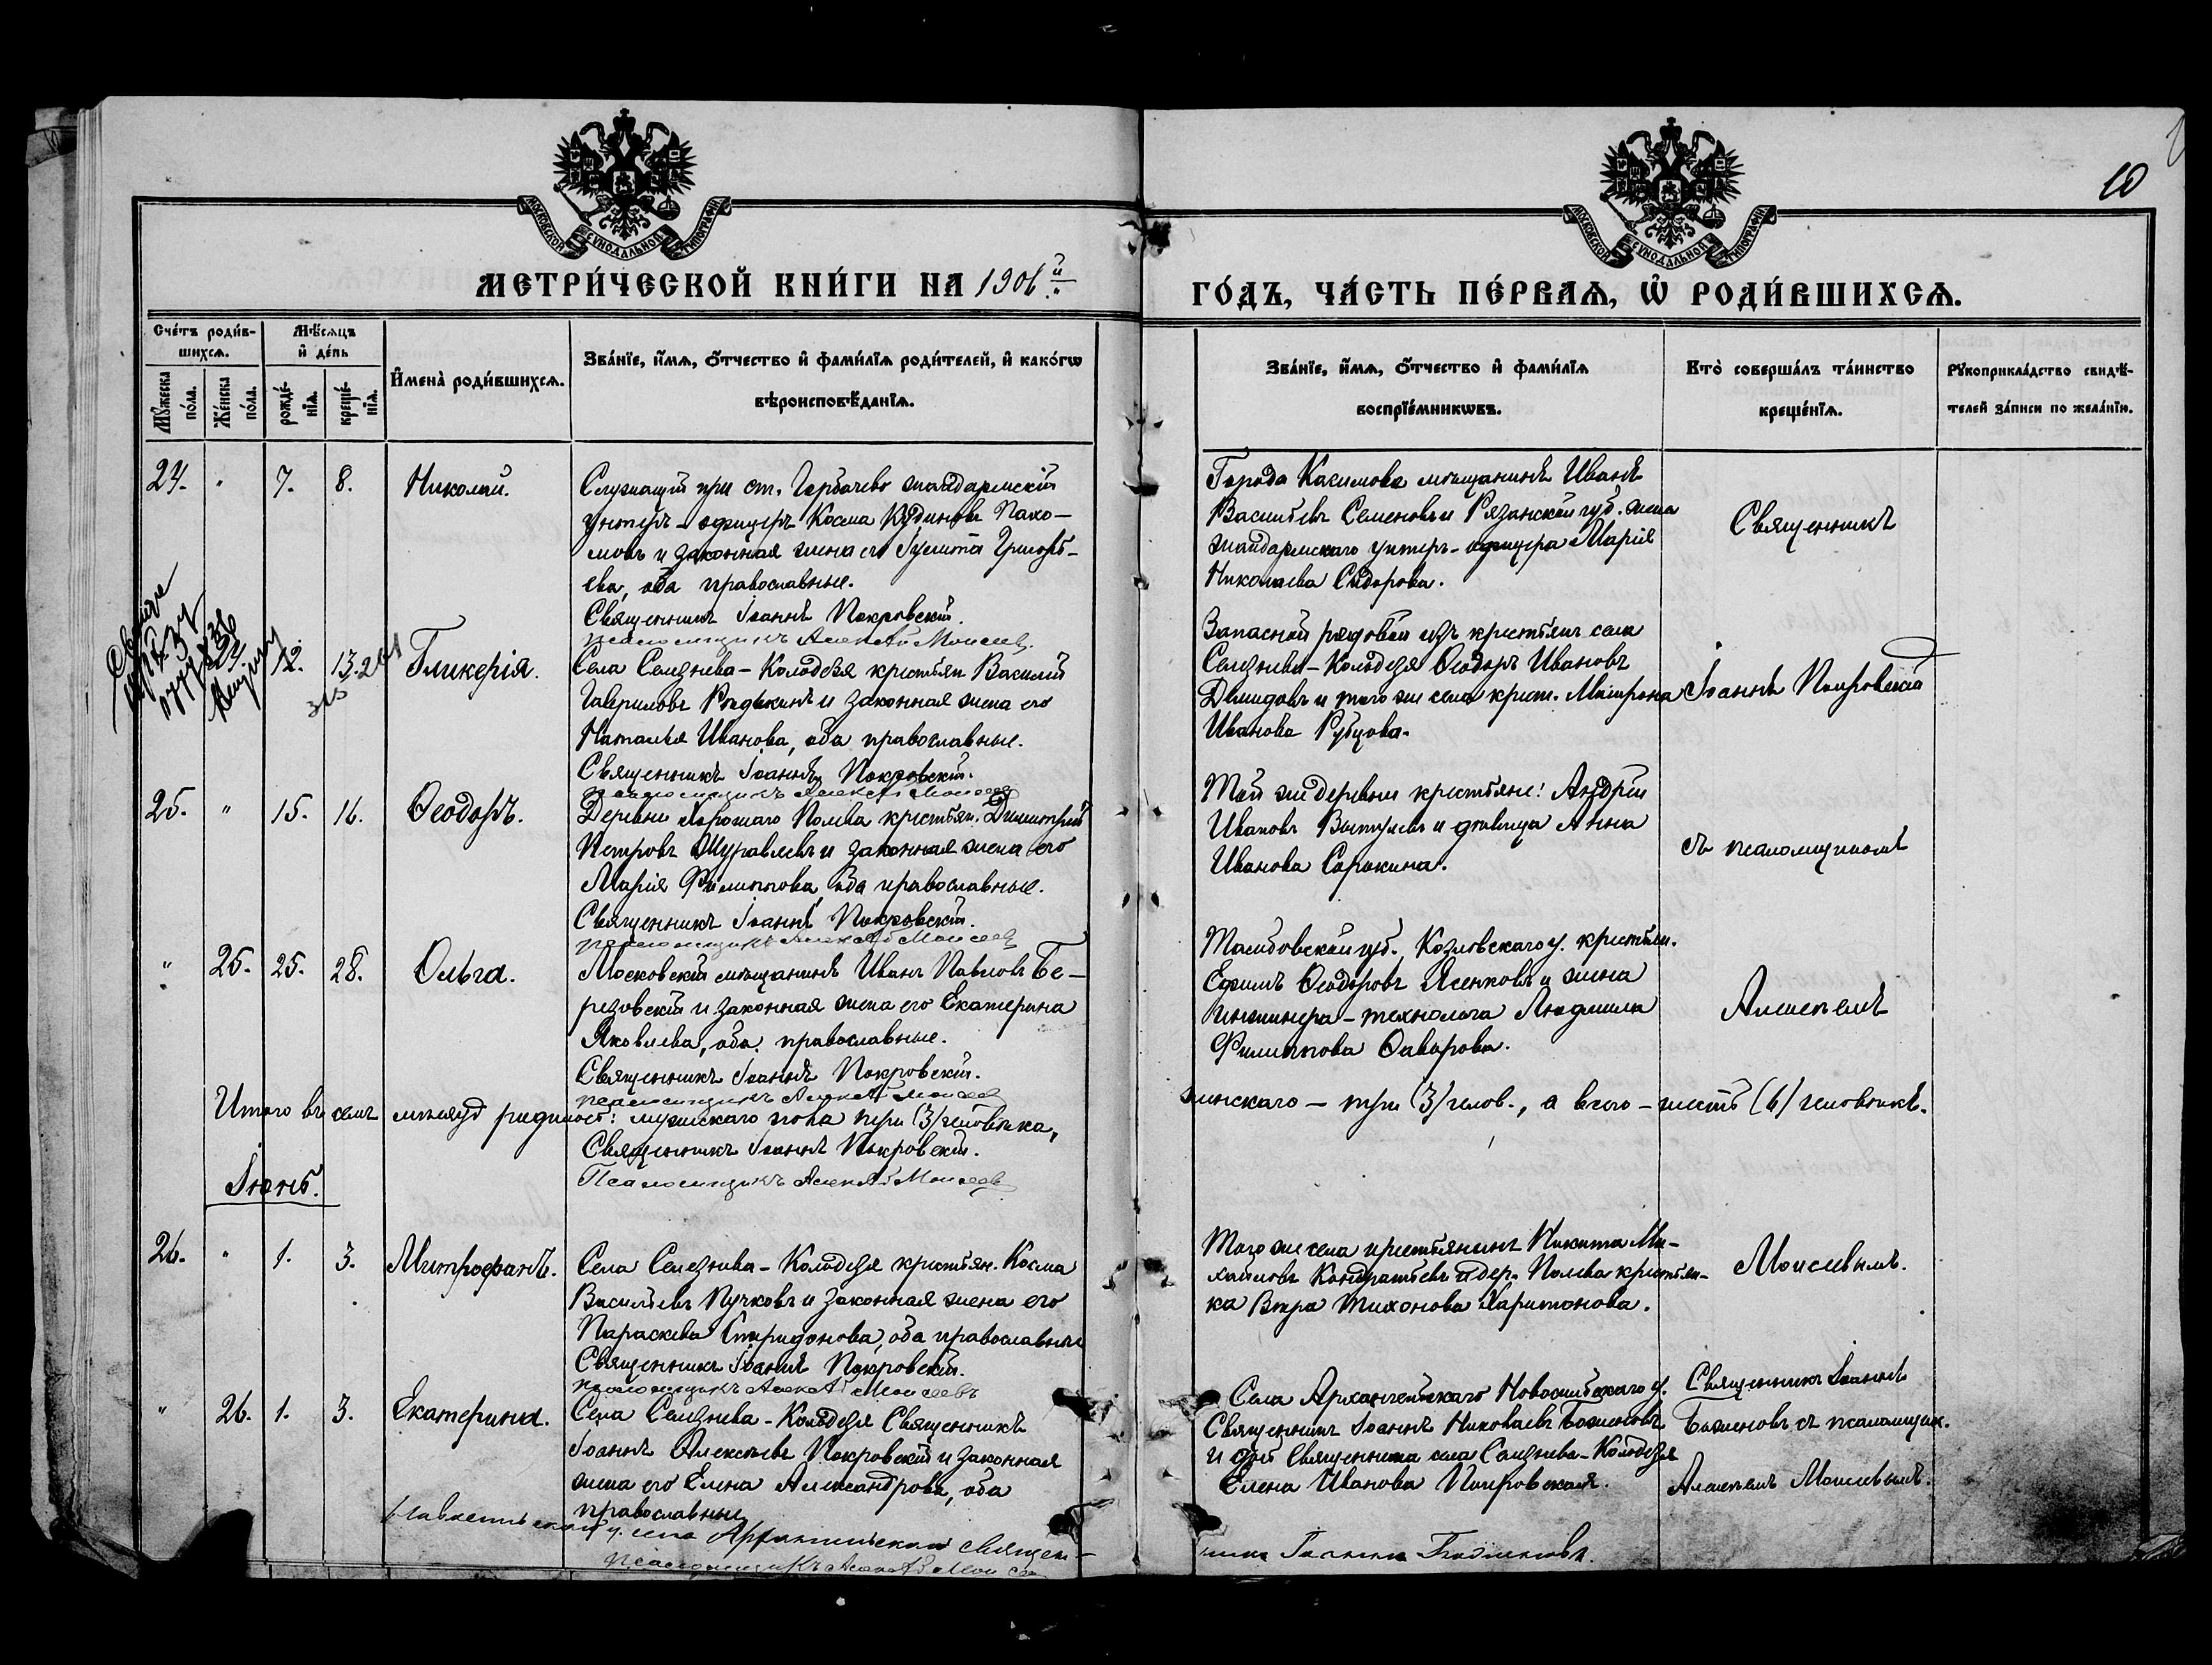 10
МОСКОВСКОЙ СѴНОДАЛЬНОЙ ТИПОГРАФІИ
МОСКОВСКОЙ СѴНОДАЛЬНОЙ ТИПОГРАФІИ
МЕТРИ́ЧЕСКОЙ КНИ́ГИ НА 1906й
ГО́ДЪ, ЧА́СТЬ ПЕ́РВАѦ, Ѡ҆ РОДИ́ВШИХСѦ.
Сче́тъ роди́в-
шихсѧ.
Мѣ́сѧцъ
и҆ де́нь
Мꙋ́жеска по́ла.
Же́нска по́ла.
рожде́-
нїѧ.
креще́-
нїѧ.
И҆мена̀ роди́вшихсѧ.
Зва́нїе, и҆́мѧ, ѻ҆́тчество и҆ фами́лїѧ роди́телей, и҆ како́гѡ
вѣроисповѣ́данїѧ.
Зва́нїе, и҆́мѧ, ѻ҆́тчество и҆ фами́лїѧ
воспрїе́мникѡвъ.
Кто̀ соверша́лъ та́инство
креще́нїѧ.
Рꙋкоприкла́дство свидѣ́-
телей за́писи по жела́нїю.
24. " 7. 8. Николай.
Служащій при ст. Горбачево жандармскій
унтеръ-офицеръ Косма Кудиновъ Пахо-
мовъ и законная жена его Гулитта Григорь-
ева, оба православные.
Священникъ Іоаннъ Покровскій.
псаломщикъ Алексѣй Моисеев
Города Касимова мѣщанинъ Иванъ
Васильевъ Семеновъ и Рязанской губ. жена
жандармскаго унтеръ-офицера Марія
Николаева Сидорова.
Священникъ
12. 13. Гликерія.
Села Селезнева-Колодезя крестьян Василій
Гавриловъ Редькинъ и законная жена его
Наталья Иванова, оба православные.
Священникъ Іоаннъ Покровскій.
псаломщикъ Алексѣй Моисеев
Запасной рядовой изъ крестьянъ села
Селезнева-Колодезя Ѳеодоръ Ивановъ
Демидовъ и того же села крест. Матрона
Иванова Рубцова.
Іоаннъ Покровскій
25. " 15. 16. Ѳеодоръ.
Деревни Хорошаго Полева крестьян. Димитрій
Петровъ Журавлевъ и законная жена его
Марія Филиппова, оба православные.
Священникъ Іоаннъ Покровскій.
псаломщикъ Алексѣй Моисеев
Той же деревни крестьяне: Андрей
Ивановъ и дѣвица Анна
Иванова Сорокина.
съ псаломщикомъ
" 25. 25. 28. Ольга.
Московскій мѣщанинъ Иванъ Павловъ Бе-
резовскій и законная жена его Екатерина
Яковлева, оба православные.
Священникъ Іоаннъ Покровскій.
псаломщикъ Алексѣй Моисеев
Тамбовской губ. Козловскаго у. крестьян.
Ефимъ Ѳеодоровъ Ясенковъ и жена
инженера-технолога Людмила
Филиппова
Алексѣемъ
Итого въ семъ мѣсяцѣ родилось: мужскаго пола три (3) человѣка,
женскаго — три (3) челов., а всего — шесть (6) человѣкъ.
Священникъ Іоаннъ Покровскій.
Псаломщикъ Алексѣй Моисеев
Іюнь.
26. " 1. 3. Митрофанъ.
Села Селезнева-Колодезя крестьян. Косма
Васильевъ Пучковъ и законная жена его
Параскева Спиридонова, оба православные
Священникъ Іоаннъ Покровскій.
псаломщикъ Алексѣй Моисеевъ
Того же села крестьянинъ Никита Ми-
хайловъ Кондратьевъ и дер. Полева крестьян-
ка Вѣра Тихонова Харитонова.
Моисеевымъ.
" 26. 1. 3. Екатерина.
Села Селезнева-Колодезя Священникъ
Іоаннъ Алексѣевъ Покровскій и законная
жена его Елена Александрова, оба
православные
Села Архангельскаго Новосильскаго у.
Священникъ Іоаннъ Николаевъ Боженовъ
и дочь Священника села Селезнева-Колодезя
Елена Иванова Покровская.
Священникъ Іоаннъ
Боженовъ съ псаломщик.
Алексѣемъ Моисеевымъ.
псаломщикъ Алексѣй Моисеев